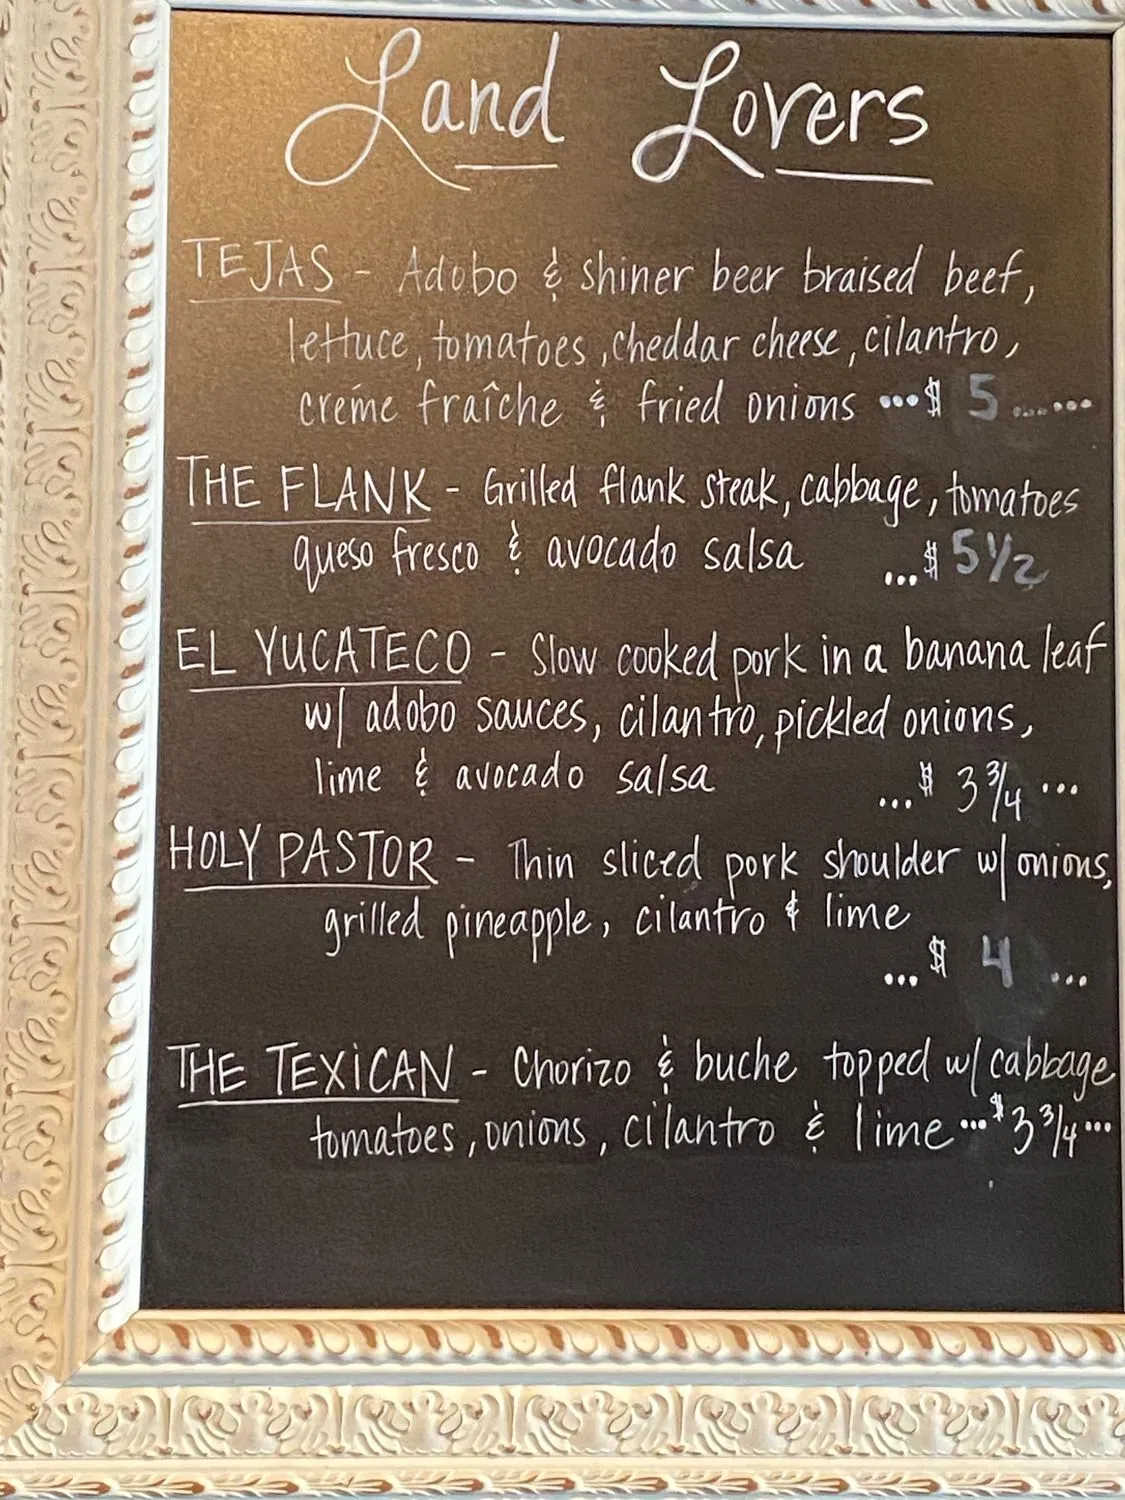 Land Lovers
TEJAS - Adobo & shiner beer braised beef,
lettuce, tomatoes, cheddar cheese, cilantro,
créme fraîche & fried onions ...$ 5 .........
THE FLANK - Grilled flank steak, cabbage, tomatoes
queso fresco & avocado salsa ...$ 5 1/2
EL YUCATECO - Slow cooked pork in a banana leaf
w/ adobo sauces, cilantro, pickled onions,
lime & avocado salsa ...$ 3 3/4 ...
HOLY PASTOR - Thin sliced pork shoulder w/ onions,
grilled pineapple, cilantro & lime
...$ 4 ...
THE TEXICAN - Chorizo & buche topped w/ cabbage
tomatoes, onions, cilantro & lime ...$ 3 3/4 ...